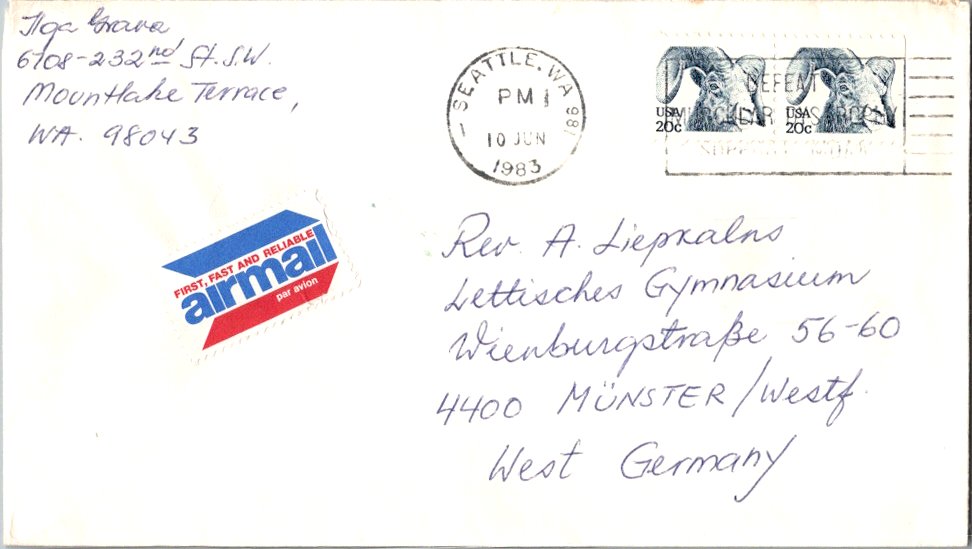 Ilga Grava
6708-232nd St. S.W.
Mountlake Terrace,
WA. 98043
SEATTLE, WA 981
PM
10 JUN
1983
USA
20c
USA
20c
DEFEAT
MUSCULAR DYSTROPHY
SUPPORT MDAA
FIRST, FAST AND RELIABLE
airmail
par avion
Rev. A. Liepkalns
Lettisches Gymnasium
Wienburgstraße 56-60
4400 MÜNSTER/Westf.
West Germany